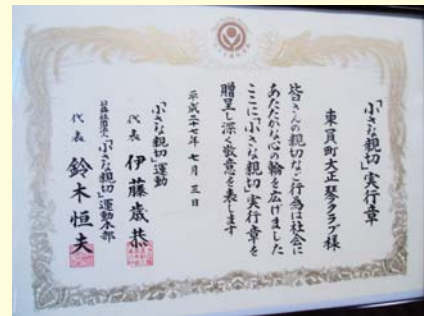 「小さな親切」実行章
東員町大正琴クラブ様
皆さんの親切なご行為は社会に
あたたかな心の輪を広げました
ここに「小さな親切」実行章を
贈呈し深く敬意を表します
平成二十七年七月三日
「小さな親切」運動
代表 伊藤歳恭
公益社団法人「小さな親切」運動本部
代表 鈴木恒夫